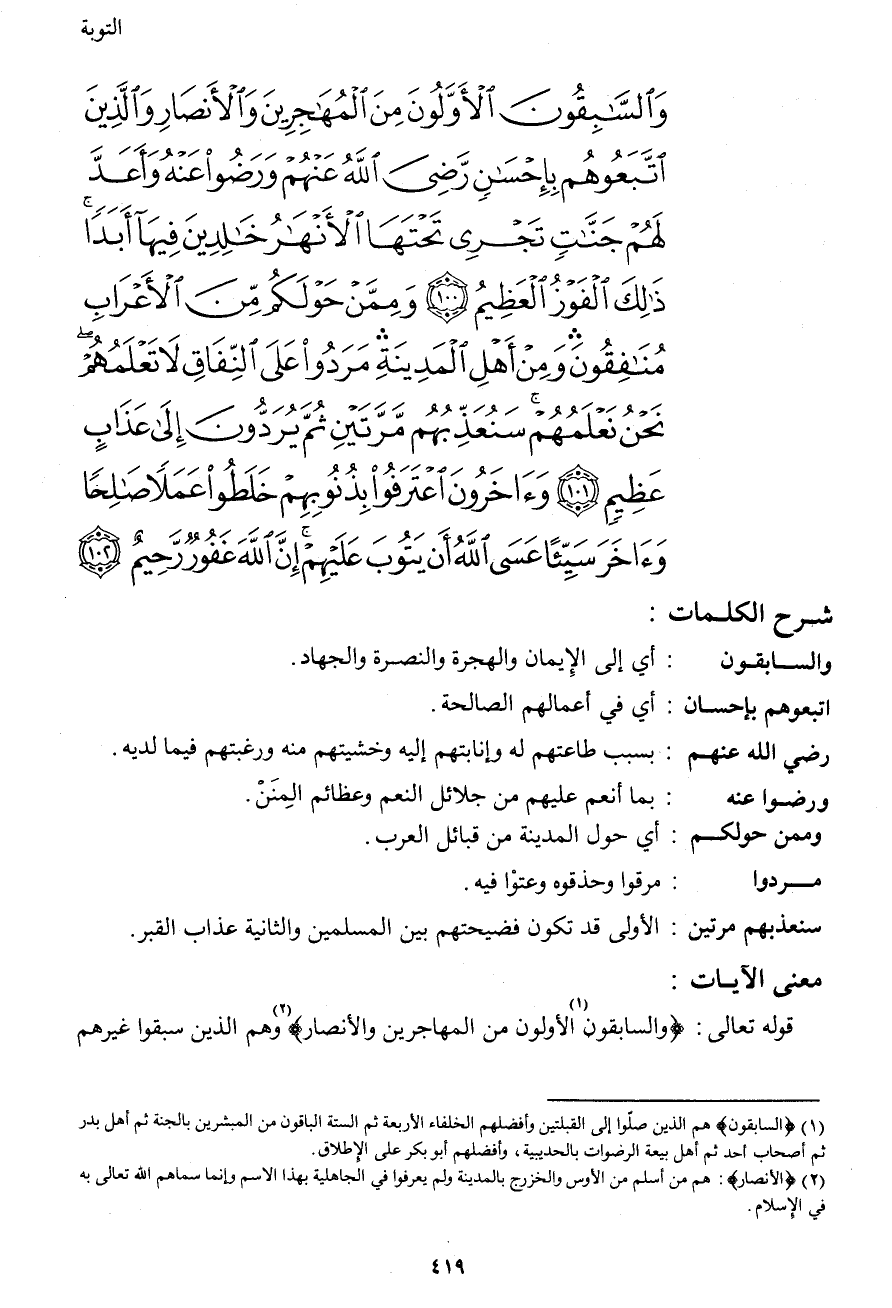 التوبة
وَٱلسَّٰبِقُونَ ٱلْأَوَّلُونَ مِنَ ٱلْمُهَٰجِرِينَ وَٱلْأَنصَارِ وَٱلَّذِينَ
ٱتَّبَعُوهُم بِإِحْسَٰنٍ رَّضِىَ ٱللَّهُ عَنْهُمْ وَرَضُوا۟ عَنْهُ وَأَعَدَّ
لَهُمْ جَنَّٰتٍ تَجْرِى تَحْتَهَا ٱلْأَنْهَٰرُ خَٰلِدِينَ فِيهَآ أَبَدًا ۚ
ذَٰلِكَ ٱلْفَوْزُ ٱلْعَظِيمُ ١٠٠ وَمِمَّنْ حَوْلَكُم مِّنَ ٱلْأَعْرَابِ
مُنَٰفِقُونَ ۛ وَمِنْ أَهْلِ ٱلْمَدِينَةِ ۛ مَرَدُوا۟ عَلَى ٱلنِّفَاقِ لَا تَعْلَمُهُمْ ۖ
نَحْنُ نَعْلَمُهُمْ ۚ سَنُعَذِّبُهُم مَّرَّتَيْنِ ثُمَّ يُرَدُّونَ إِلَىٰ عَذَابٍ
عَظِيمٍ ١٠١ وَءَاخَرُونَ ٱعْتَرَفُوا۟ بِذُنُوبِهِمْ خَلَطُوا۟ عَمَلًا صَٰلِحًا
وَءَاخَرَ سَيِّئًا عَسَى ٱللَّهُ أَن يَتُوبَ عَلَيْهِمْ ۚ إِنَّ ٱللَّهَ غَفُورٌ رَّحِيمٌ ١٠٢
شرح الكلمات :
والسابقون : أي إلى الإيمان والهجرة والنصرة والجهاد.
اتبعوهم بإحسان : أي في أعمالهم الصالحة.
رضي الله عنهم : بسبب طاعتهم له وإنابتهم إليه وخشيتهم منه ورغبتهم فيما لديه.
ورضوا عنه : بما أنعم عليهم من جلائل النعم وعظائم المِنَنْ.
وممن حولكم : أي حول المدينة من قبائل العرب.
مردوا : مرقوا وحذقوه وعتوْا فيه.
سنعذبهم مرتين : الأولى قد تكون فضيحتهم بين المسلمين والثانية عذاب القبر.
معنى الآيات :
قوله تعالى : ﴿والسابقون(١) الأولون من المهاجرين والأنصار﴾(٢) وهم الذين سبقوا غيرهم
(١) ﴿السابقون﴾ هم الذين صلّوا إلى القبلتين وأفضلهم الخلفاء الأربعة ثم الستة الباقون من المبشرين بالجنة ثم أهل بدر
ثم أصحاب احد ثم أهل بيعة الرضوات بالحديبية، وأفضلهم أبو بكر على الإطلاق.
(٢) ﴿الأنصار﴾ : هم من أسلم من الأوس والخزرج بالمدينة ولم يعرفوا في الجاهلية بهذا الاسم وإنما سماهم الله تعالى به
في الإسلام.
٤١٩